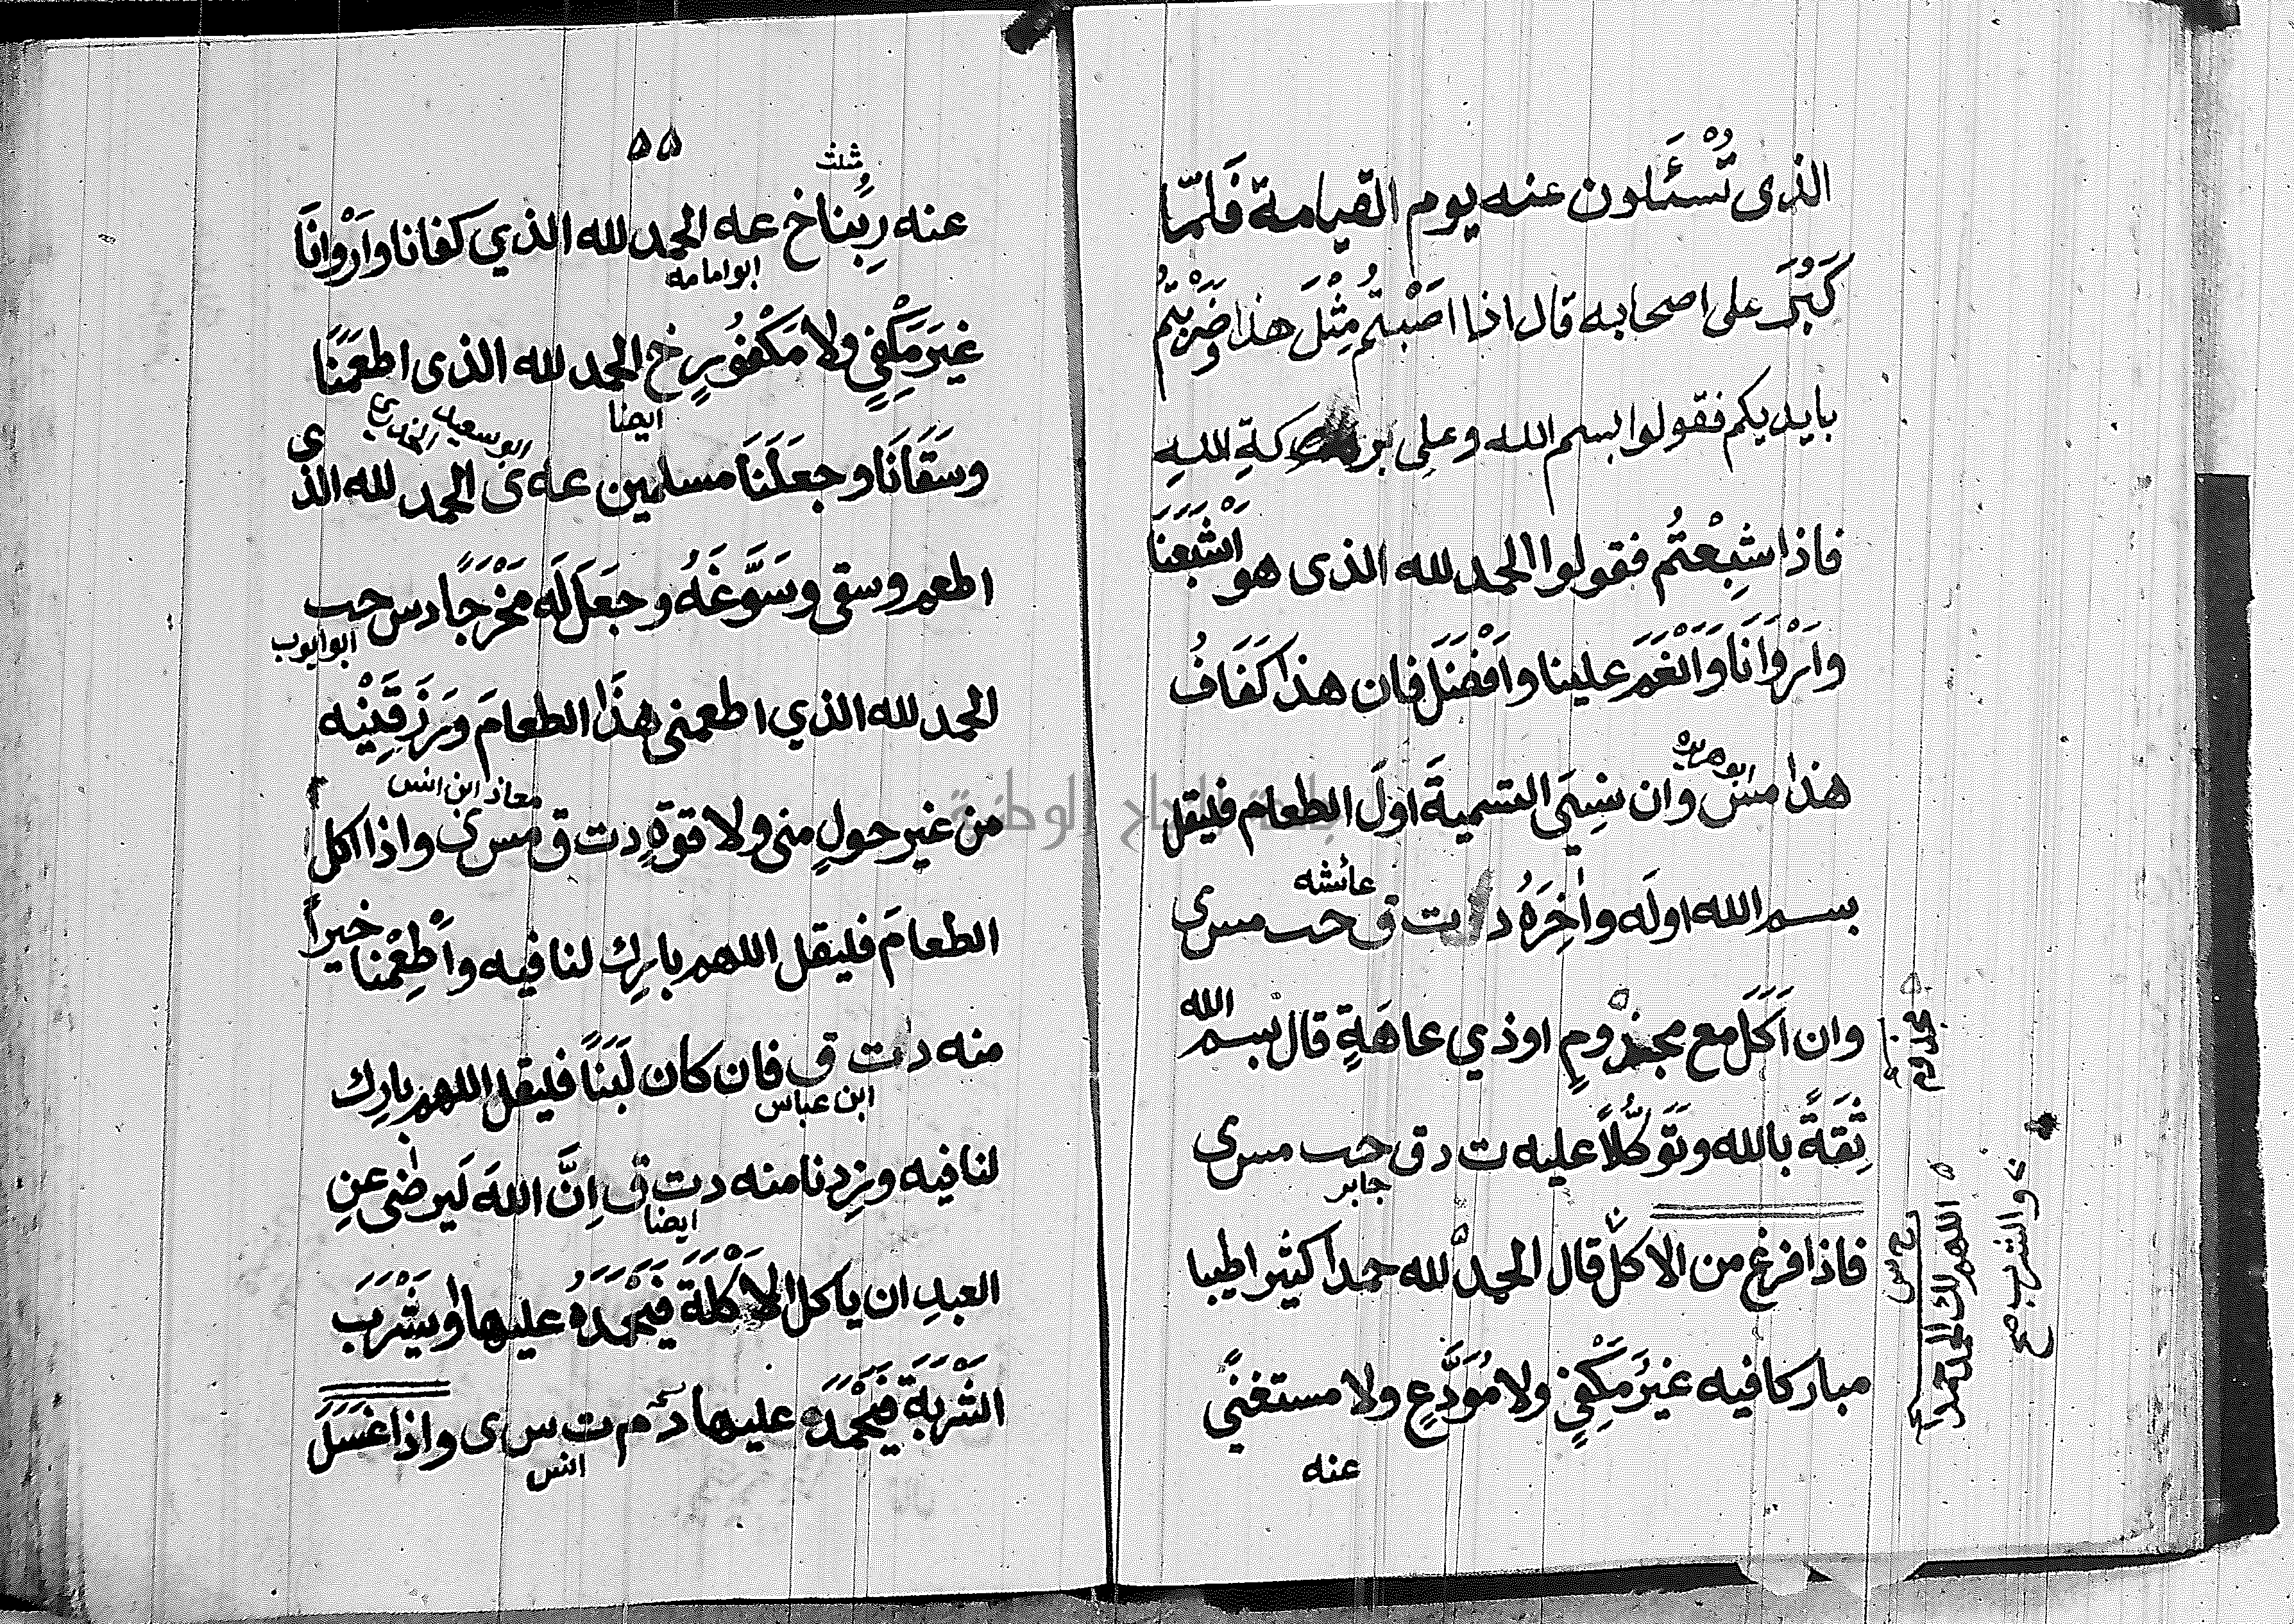 الذى تُسْئَلون عنه يوم القيامة فَلَمّا
كَبُرَ على اصحابه قال اذا اَصَبْتُم مِثْلَ هذا وضَرَبْتُم
بايديكم فقولوا بسم الله وعلى بركةِ اللهِ
فاذا شَبِعْتُم فقولوا الحمد لله الذى هو اَشْبَعَنَا
واَرْوَانَا وَاَنْعَمَ علينا واَفْضَلَ فان هذا كَفَافُ
ابو هريره
هذا مس وان نسِىَ التسميةَ اولَ الطعام فليقل
عائشه
بسم الله اوله واٰخِرَهُ د ت ق حب مس ى
وان اَكَلَ مع مجذْومٍ او ذي عاهَةٍ قال بسم الله
ثِقَةً بالله وتَوَكُّلاً عليه ت د ق حب مس ى
جابر
فاذا فرغ من الاكل قال الحمد لله حمدا كثيرا طيبا
مباركا فيه غيرَ مَكْفِيٍ ولا مُوَدَّعٍ ولا مستغنىً
عنه
مجذوم
اللهم لك الحمد حمداً
والشرب صح
۵۵
مثلث
عنه رَبُّنا خ عه الحمد لله الذي كفانا واَرْوانَا
ابو امامه
غيرَ مَكْفِيٍ ولا مَكْفُورٍ خ الحمد لله الذى اطعَمَنَا
ايضا
وسَقَانَا وجعَلَنَا مسلمين عه ى الحمد لله الذى
ابو سعيد الخدرى
اطعم وسقى وسَوَّغَهُ وجَعَلَ لَه مَخْرَجًا د س حب
ابو ايوب
الحمد لله الذي اطعمنى هذا الطعامَ ورَزَقَنِيْه
من غير حولٍ منى ولا قوةٍ د ت ق مس ى واذا اكل
معاذ ابن انس
الطعامَ فليقل اللهم بارِك لنا فيه واَطْعِمْنا خيراً
منه د ت ق فان كان لَبَنًا فليقل اللهم بارِك
ابن عباس
لنا فيه وزِدنا منه د ت ق اِنَّ اللهَ لَيرضٰى عنِ
ايضا
العبدِ ان ياكل الاَكْلَةَ فيَحْمَدَهُ عليها او يَشْرَبَ
الشَرْبَةَ فيَحْمَدَه عليها م ت س ى واذا غَسَلَ
انس